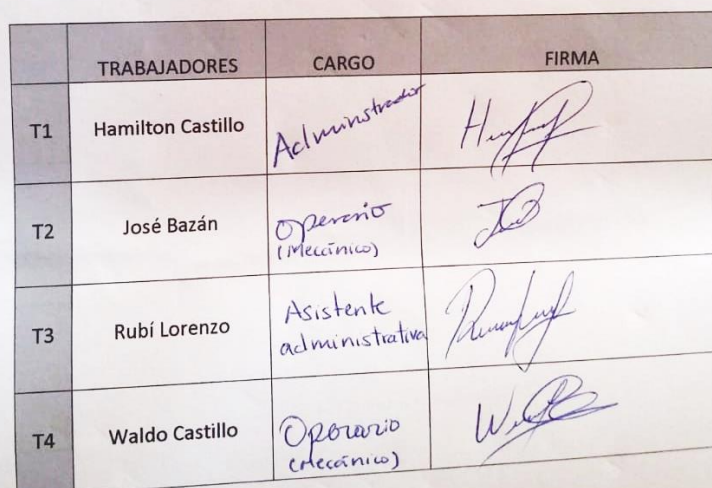 TRABAJADORES CARGO FIRMA
T1 Hamilton Castillo Administrador
T2 José Bazán Operario
(Mecánico)
T3 Rubí Lorenzo Asistente
administrativa
T4 Waldo Castillo Operario
(Mecánico)